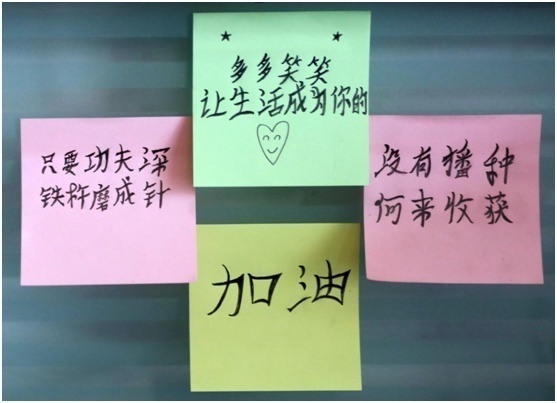 多多笑笑
让生活成为你的
只要功夫深
铁杵磨成针
没有播种
何来收获
加油